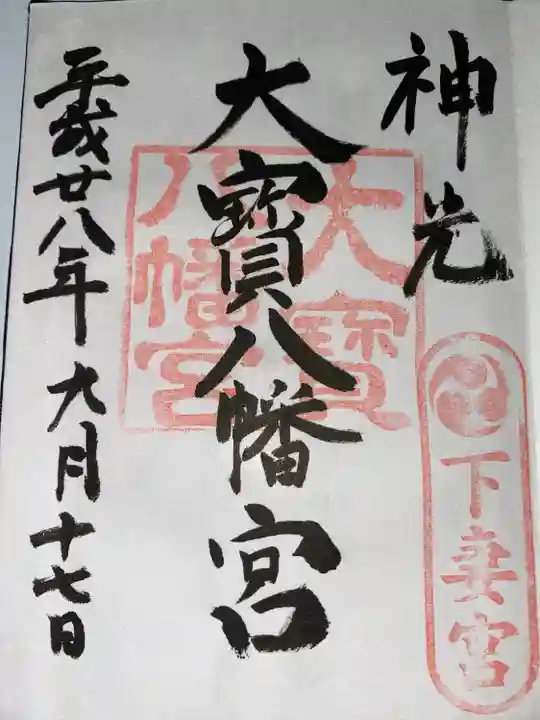 神光
下妻宮
大寳八幡宮
大寳
八幡宮
平成廿八年九月十七日